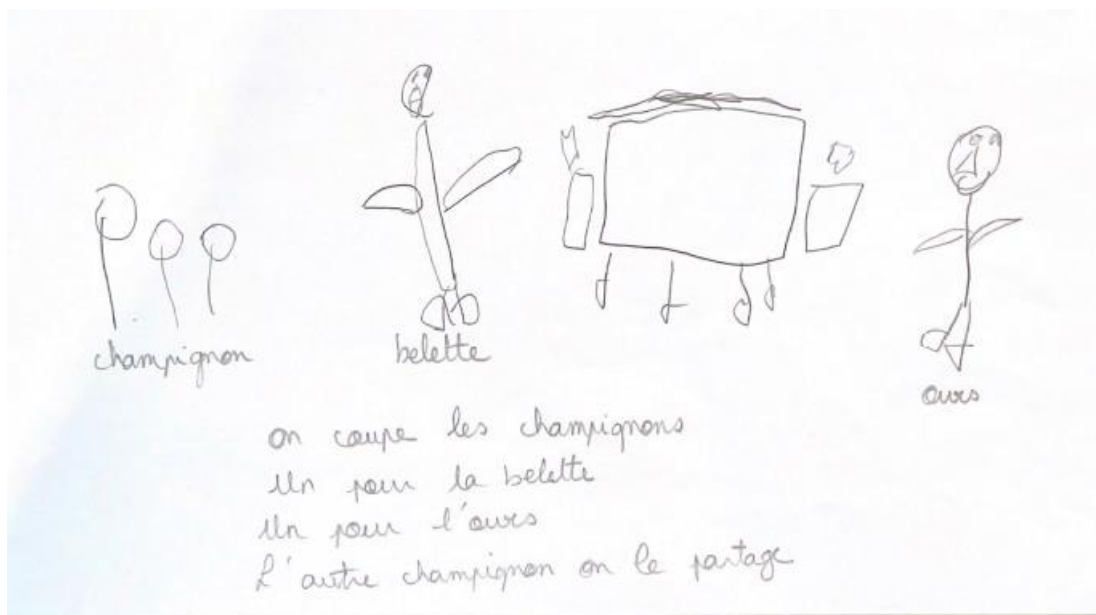 champignon
belette
ours
on coupe les champignons
Un pour la belette
Un pour l'ours
L'autre champignon on le partage